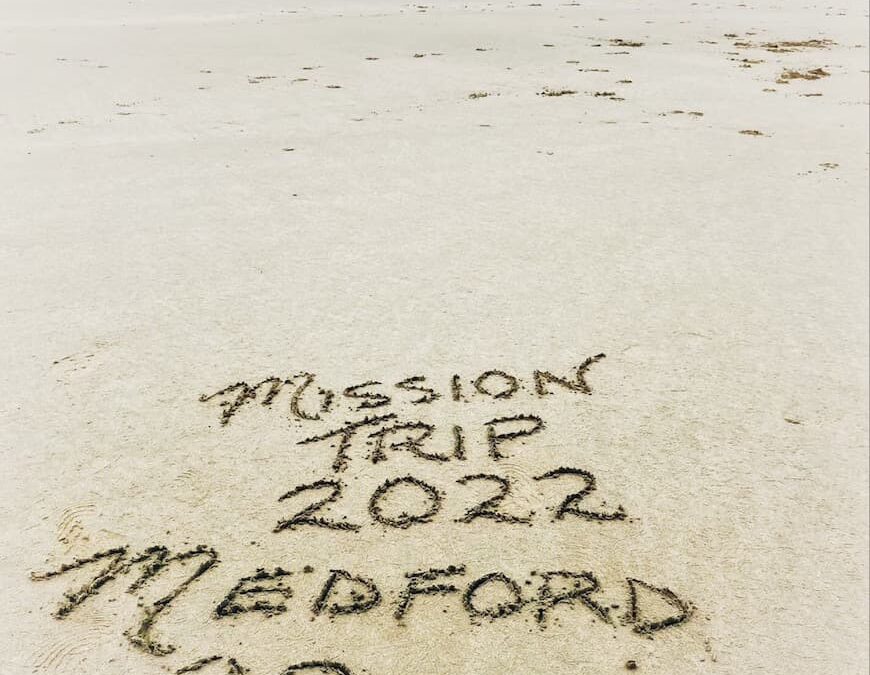 MISSION
TRIP
2022
MEDFORD